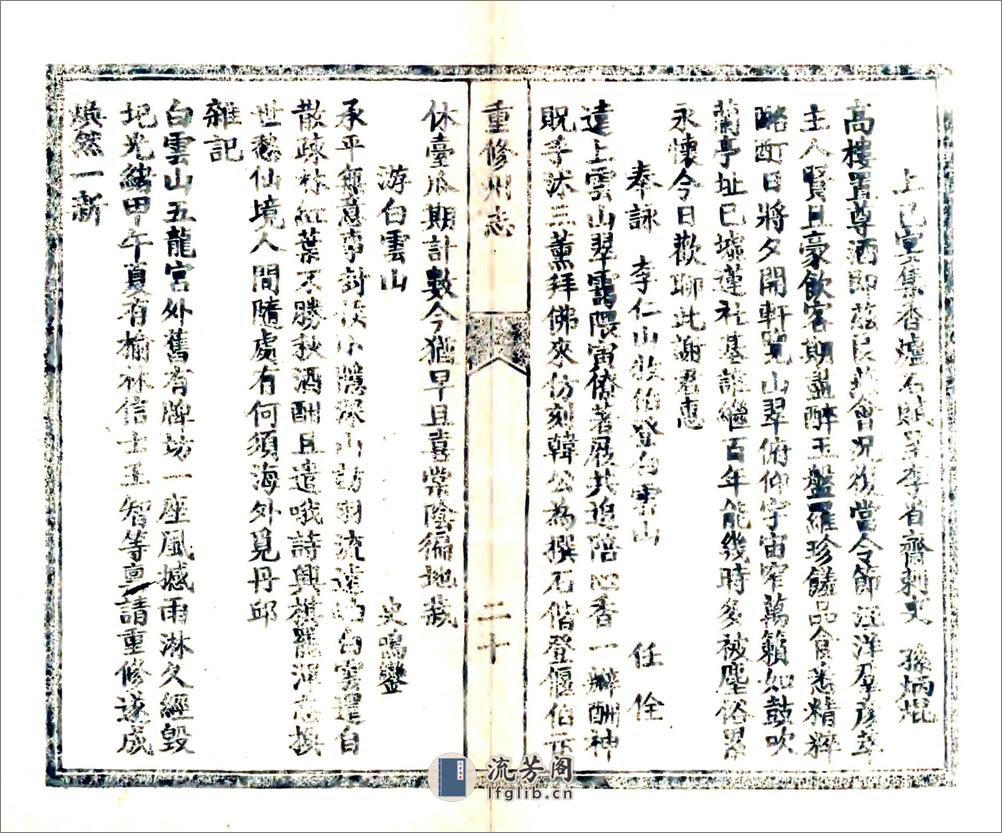 上巳宴集香爐石貽呈李省齋刺史　孫炳焜
高樓置尊酒即茲良燕會况復當令節汪洋羣彥萃
主人賢且豪飲客期盡醉玉盤羅珍饈品食悉精粹
酩酊日將夕開軒覽山翠俯仰宇宙窄萬籟如鼓吹
蘭亭址已墟蓮社基誰繼百年能幾時多被塵俗累
永懷今日歡聊此謝君惠
奉詠　李仁山牧伯登白雲山　任佺
達上雲山翠靄隈寅僚著屐共追陪心香一瓣酬神
貺手沐三薰拜佛來仿刻韓公為撰石偕登偃伯示
重修州志　二十
休臺瓜期計數今猶早且喜棠陰徧地栽
游白雲山　史鳴鑾
承平無意事封侯小隱深山訪羽流遠岫白雲還自
散疎林紅葉不勝秋酒酣且遣哦詩興棋罷渾忘
世愁仙境人間隨處有何須海外覓丹邱
雜記
白雲山五龍宮外舊有牌坊一座風撼雨淋久經毀
圯光緒甲午夏有榆林信士王智等稟請重修遂成
煥然一新
流芳阁
lfglib.cn